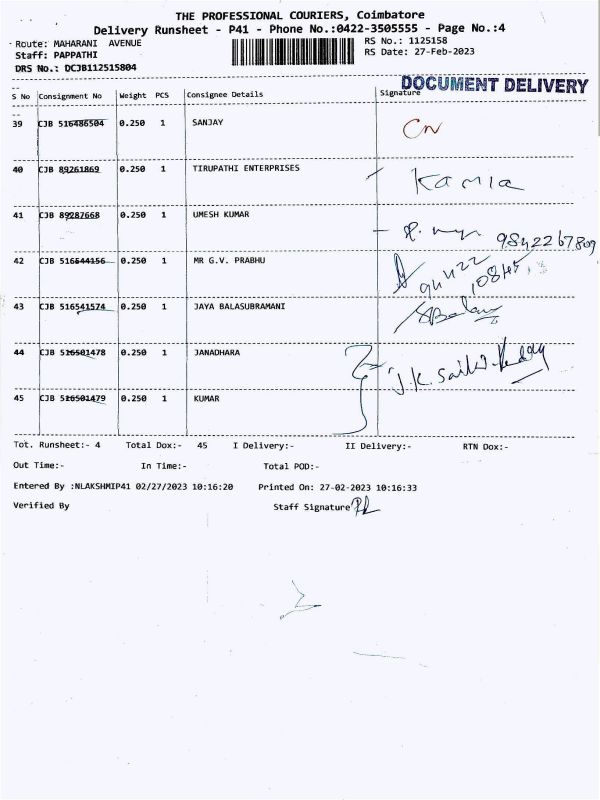 THE PROFESSIONAL COURIERS, Coimbatore
Delivery Runsheet - P41 - Phone No.:0422-3505555 - Page No.:4
Route: MAHARANI AVENUE
RS No.: 1125158
Staff: PAPPATHI
RS Date: 27-Feb-2023
DRS No.: DCJB112515804
DOCUMENT DELIVERY
S No Consignment No Weight PCS Consignee Details Signature
39 CJB 516486504 0.250 1 SANJAY
40 CJB 89261869 0.250 1 TIRUPATHI ENTERPRISES Kamla
41 CJB 89287668 0.250 1 UMESH KUMAR 9842267809
42 CJB 516644156 0.250 1 MR G.V. PRABHU
43 CJB 516541574 0.250 1 JAYA BALASUBRAMANI
44 CJB 516501478 0.250 1 JANADHARA
45 CJB 516501479 0.250 1 KUMAR
Tot. Runsheet:- 4 Total Dox:- 45 I Delivery:- II Delivery:- RTN Dox:-
Out Time:- In Time:- Total POD:-
Entered By :NLAKSHMIP41 02/27/2023 10:16:20 Printed On: 27-02-2023 10:16:33
Verified By Staff Signature